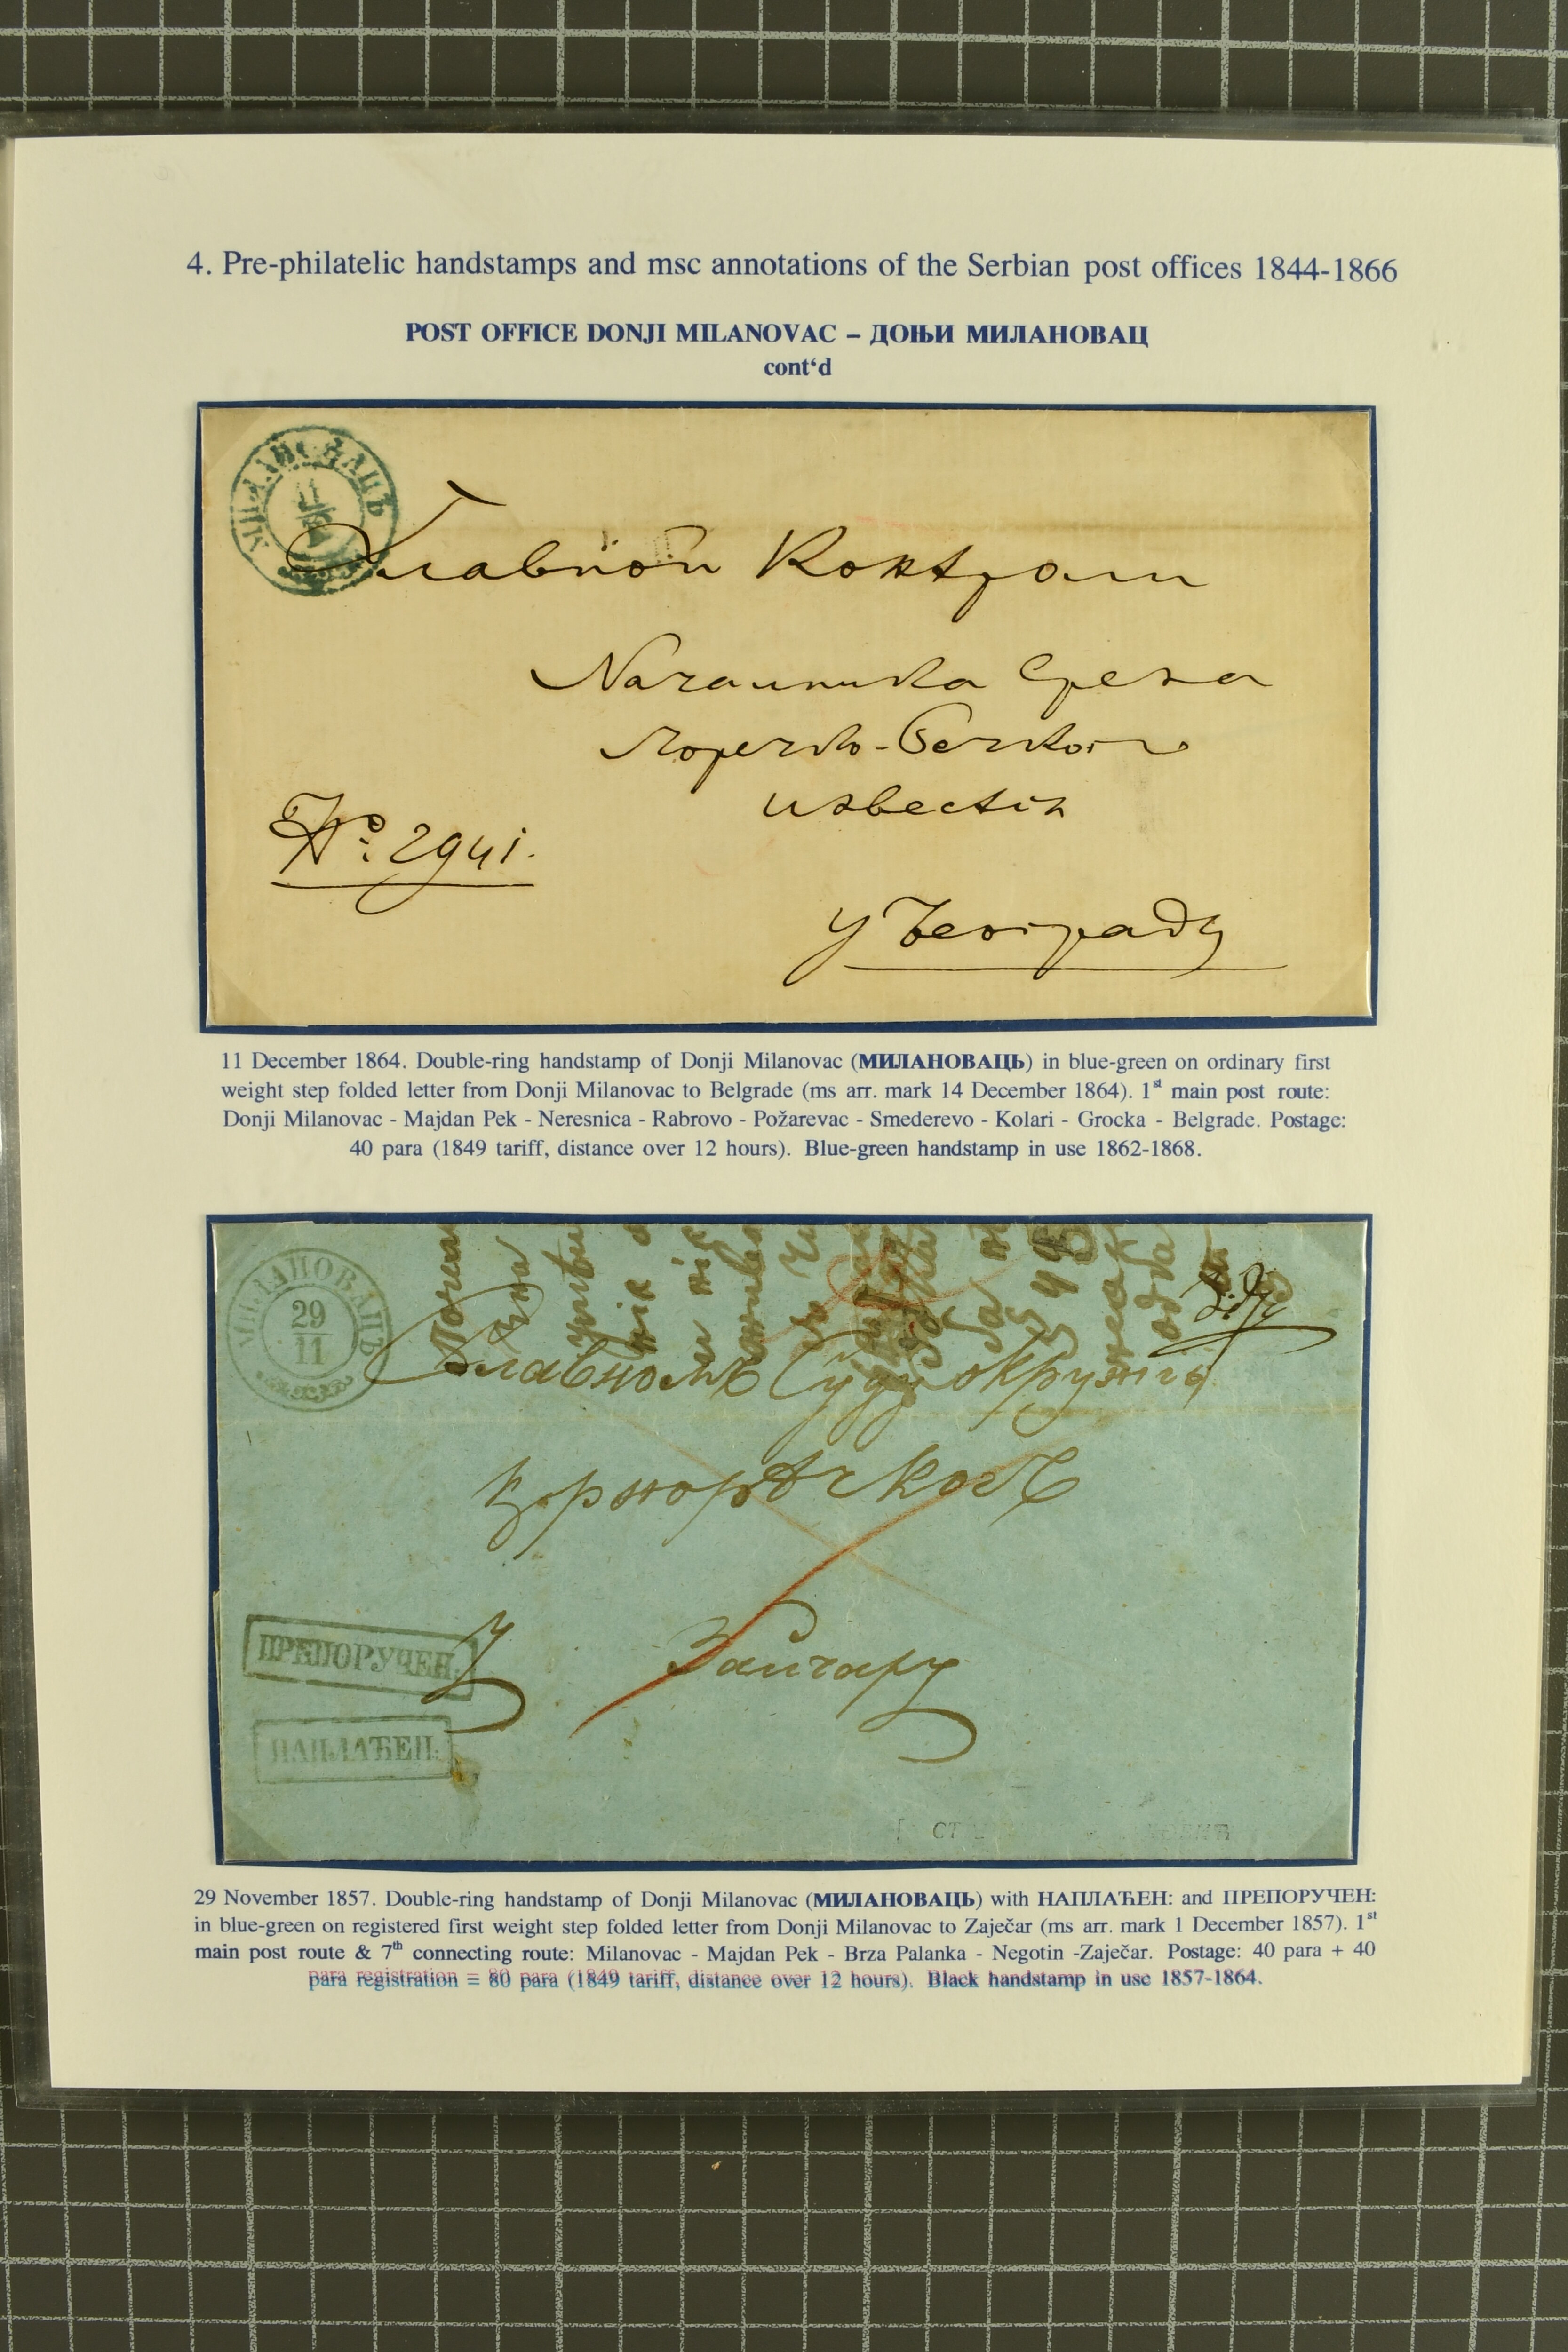 4. Pre-philatelic handstamps and msc annotations of the Serbian post offices 1844-1866
POST OFFICE DONJI MILANOVAC – ДОЊИ МИЛАНОВАЦ
cont‘d
МИЛАНОВАЦЪ
11
Главной Контроли
Началника Среза
Поречко-
известія
№: 2941.
у Београду
11 December 1864. Double-ring handstamp of Donji Milanovac (МИЛАНОВАЦЬ) in blue-green on ordinary first
weight step folded letter from Donji Milanovac to Belgrade (ms arr. mark 14 December 1864). 1st main post route:
Donji Milanovac - Majdan Pek - Neresnica - Rabrovo - Požarevac - Smederevo - Kolari - Grocka - Belgrade. Postage:
40 para (1849 tariff, distance over 12 hours). Blue-green handstamp in use 1862-1868.
МИЛАНОВАЦЪ
29
11
Славномъ Суду окружія
црнорѣчкогъ
ПРЕПОРУЧЕН: У Заичару
НАПЛАЋЕН:
29 November 1857. Double-ring handstamp of Donji Milanovac (МИЛАНОВАЦЬ) with НАПЛАЋЕН: and ПРЕПОРУЧЕН:
in blue-green on registered first weight step folded letter from Donji Milanovac to Zaječar (ms arr. mark 1 December 1857). 1st
main post route & 7th connecting route: Milanovac - Majdan Pek - Brza Palanka - Negotin -Zaječar. Postage: 40 para + 40
para registration = 80 para (1849 tariff, distance over 12 hours). Black handstamp in use 1857-1864.